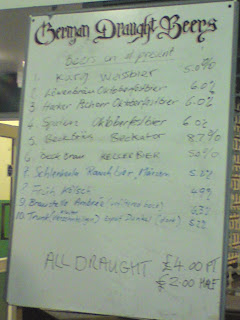 German Draught Beers
Beers on at present
1. Weissbier 5.0%
2. Löwenbräu Oktoberfestbier 6.0%
3. Hacker Pschorr Oktoberfestbier 6.0%
4. Spaten Oktoberfestbier 6.0%
5. Beckator 8.7%
6. KELLERBIER 5.0%
7. Schlenkerla Rauchbier, Märzen
8. Früh Kölsch
9. Braustelle
10. Dunkel (dark)
ALL DRAUGHT £4.00 PT
£2.00 HALF